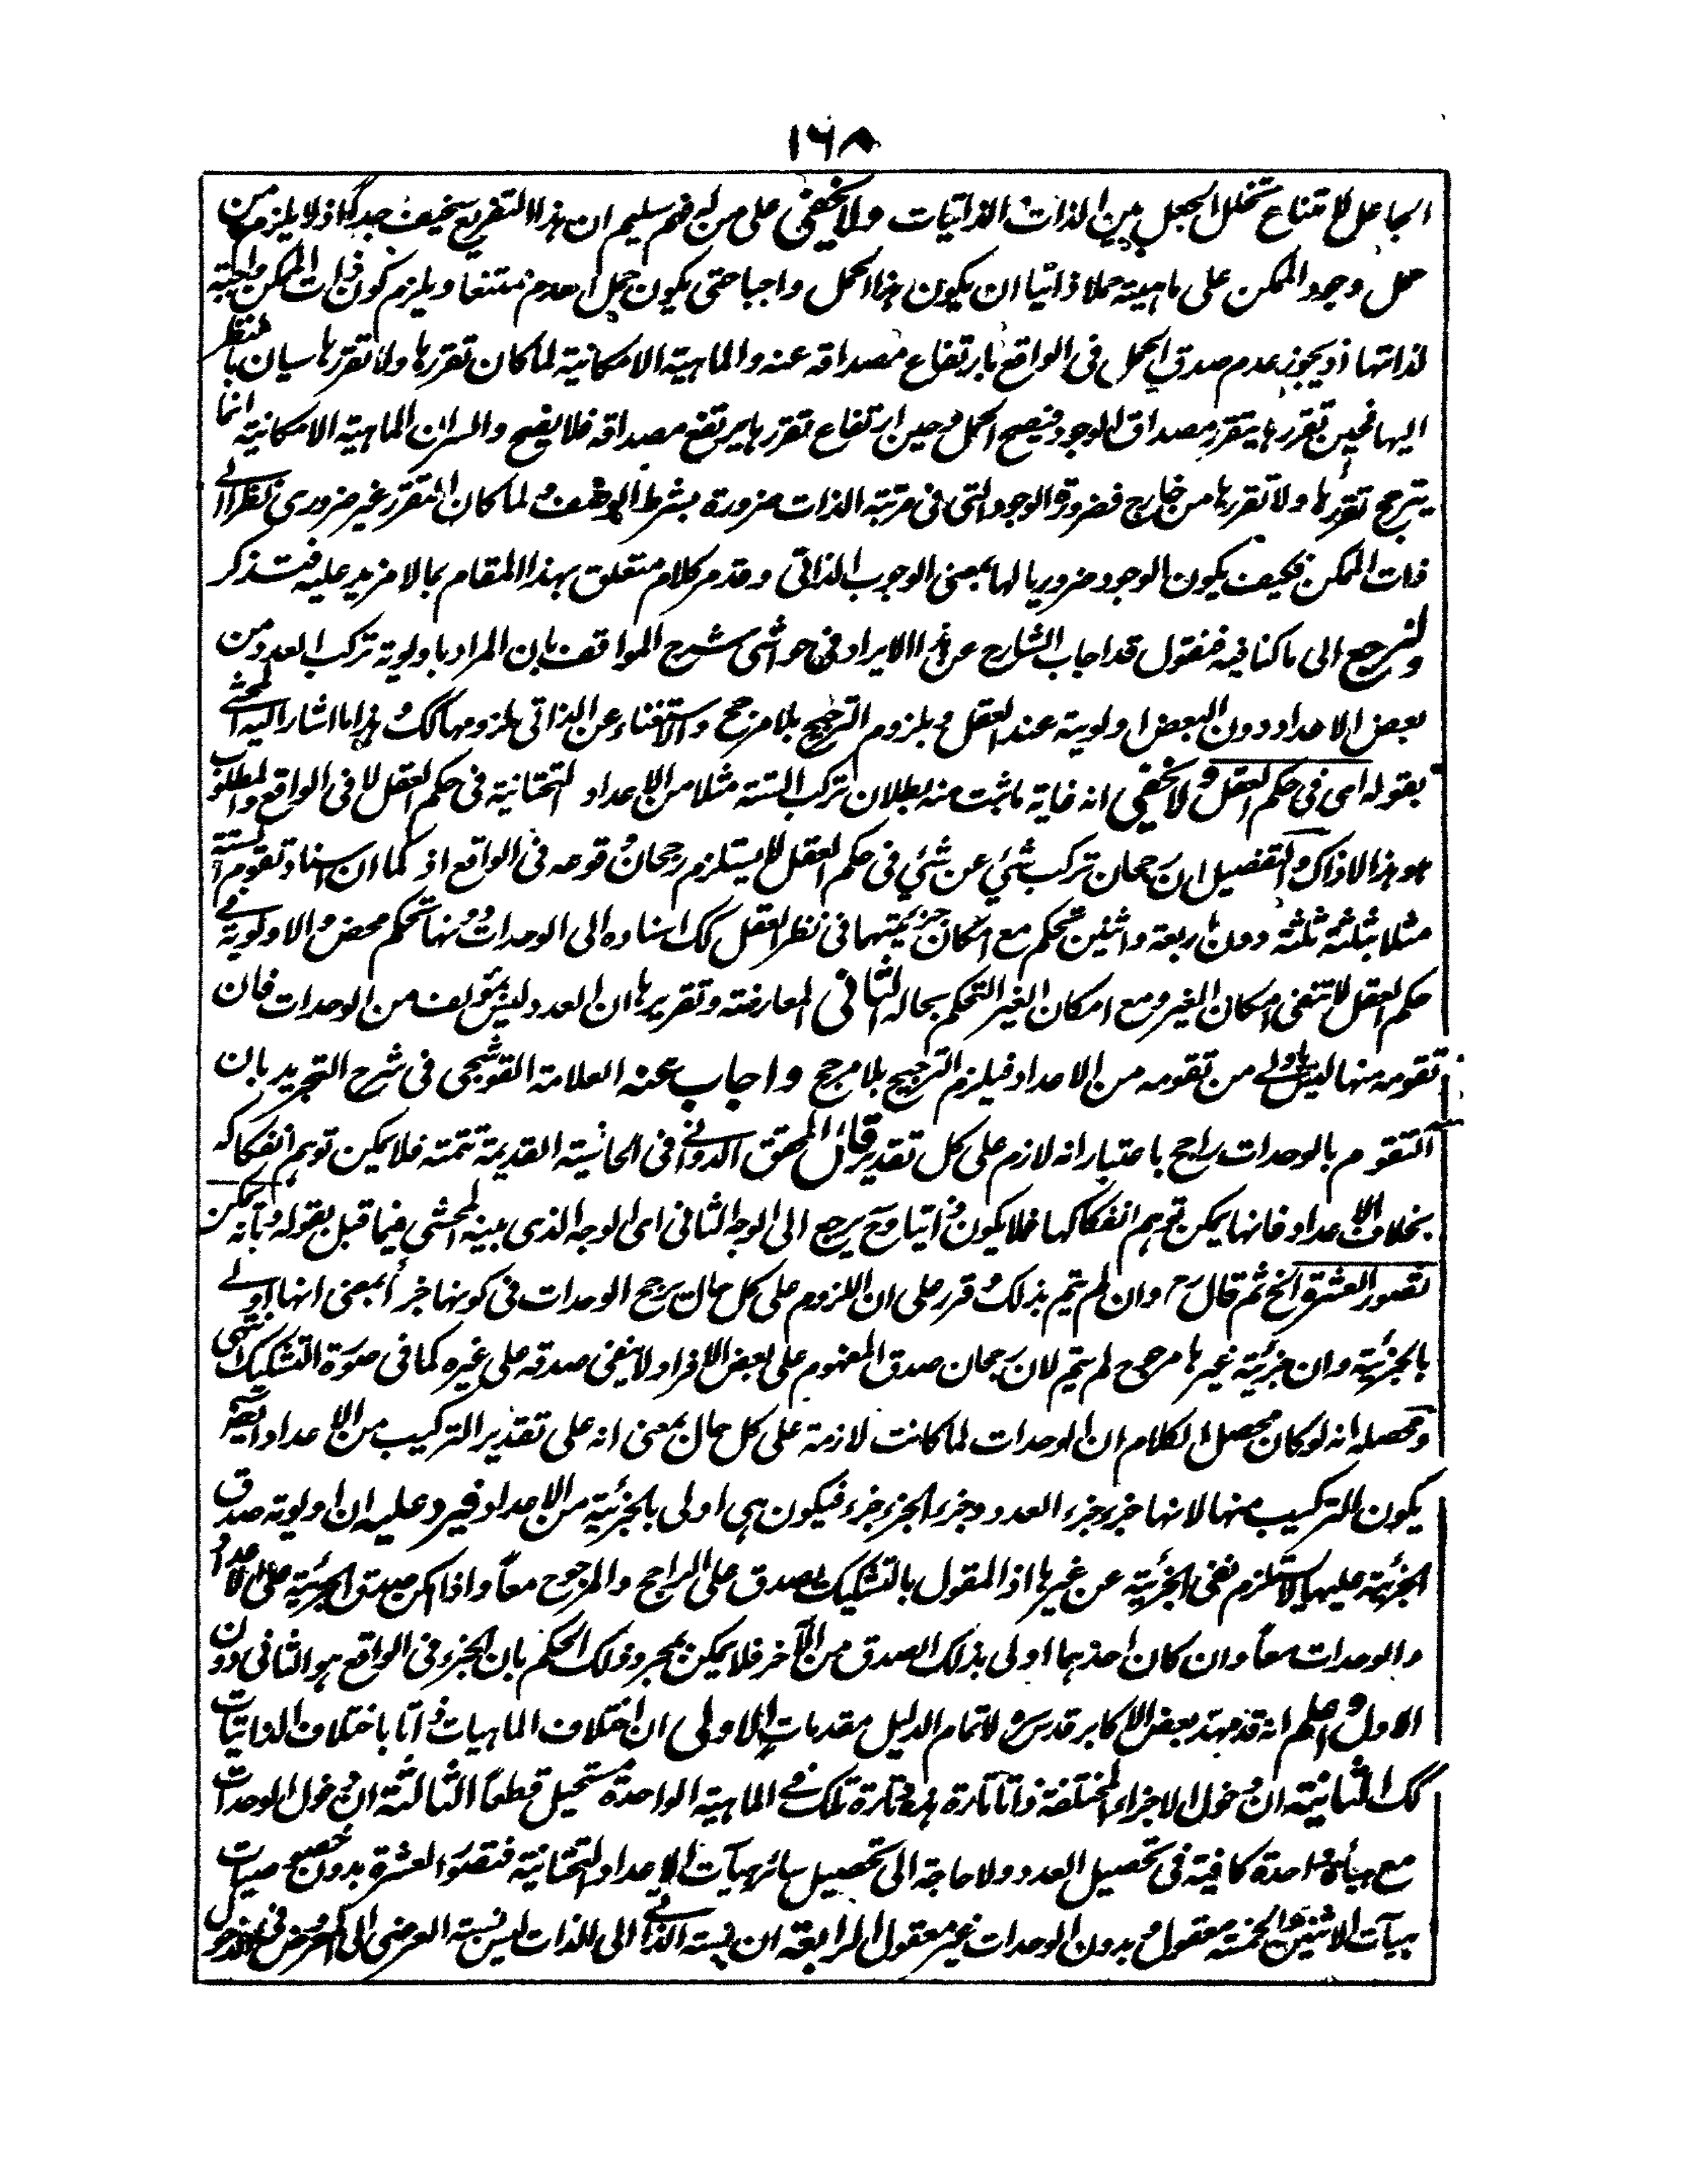 ١٦٨
الجاعل لامتناع تخلل الجعل بين الذات والذاتيات ولا يخفى على من له فهم سليم ان هذا التفريع سخيف جدا اذ لا يلزم من
حمل وجود الممكن على ماهيته حملا ذاتيا ان يكون هذا الحمل واجبا حتى يكون حمل العدم ممتنعا ويلزم كون ذات الممكن واجبة
لذاتها اذ يجوز عدم صدق الحمل فى الواقع بارتفاع مصداقه عنه والماهية الامكانية لما كان تقررها ولا تقررها سيان بالنظر
اليها فحين تقررها يتقرر مصداق الوجود فيصح الحمل وحين ارتفاع تقررها يرتفع مصداقه فلا يصح والسر ان الماهية الامكانية انما
يترجح تقررها ولا تقررها من خارج فضرورة الوجود التى فى مرتبة الذات ضرورة بشرط الوصف ولما كان التقرر غير ضرورى نظرا الى
ذات الممكن فكيف يكون الوجود ضروريا لها بمعنى الوجوب الذاتى وقد مر كلام متعلق بهذا المقام بما لا مزيد عليه فتذكر
ولنرجع الى ما كنا فيه فنقول قد اجاب الشارح عن هذا الايراد فى حواشى شرح المواقف بان المراد باولوية تركب العدد من
بعض الاعداد دون البعض اولوية عند العقل ويلزوم الترجيح بلا مرجح والاستغناء عن الذاتى لزومهما كك وهذا ما اشار اليه المحشى
بقوله اى فى حكم العقل ولا يخفى انه غاية ما ثبت منه بطلان تركب الستة مثلا من الاعداد التحتانية فى حكم العقل لا فى الواقع والمطلوب
هو هذا لا ذاك والتفصيل ان رجحان تركب شئ عن شئ فى حكم العقل لا يستلزم رجحان وقوعه فى الواقع اذ كما ان اسناد تقوم الستة
مثلا بثلثة ثلثة دون اربعة واثنين تحكم مع امكان جزئيتهما فى نظر العقل كك اسناده الى الوحدات دونها تحكم محض والاولوية فى
حكم العقل لا تنفى امكان الغير ومع امكان الغير التحكم بحاله الثانى المعارضة وتقريرها ان العدد ليس مؤلف من الوحدات فان
تقومه منها ليس باولى من تقومه من الاعداد فيلزم الترجيح بلا مرجح واجاب عنه العلامة القوشجى فى شرح التجريد بان
التقوم بالوحدات راجح باعتبار انه لازم على كل تقدير قال المحقق الدوانى فى الحاشية القديمة تتمته فلا يمكن توهم انفكاكه
بخلاف الاعداد فانها يمكن توهم انفكاكها فلا يكون ذاتيا وح يرجع الى الوجه الثانى اى الوجه الذى بينه المحشى فيما قبل بقوله وبانه يمكن
تصور العشرة الخ ثم قال وان لم يتم بذلك وقرر على ان اللزوم على كل حال يرجح الوحدات فى كونها جزأ بمعنى انها اولى
بالجزئية وان جزئية غيرها مرجوح لم يتم لان رجحان صدق المفهوم على بعض الافراد لا ينفى صدقه على غيره كما فى صورة التشكيك انتهى
ومحصله انه لو كان محصل الكلام ان الوحدات لما كانت لازمة على كل حال بمعنى انه على تقدير التركيب من الاعداد ايضا
يكون التركيب منها لانها جزء جزء العدد وجزء الجزء جزء فيكون هى اولى بالجزئية من الاعداد فيرد عليه ان اولوية صدق
الجزئية عليها لا يستلزم نفى الجزئية عن غيرها اذ المقول بالتشكيك يصدق على الراجح والمرجوح معا واذا امكن صدق الجزئية على الاعداد
والوحدات معا وان كان احدهما اولى بذلك الصدق من الآخر فلا يمكن بمجرد ذلك الحكم بان الجزء فى الواقع هو الثانى دون
الاول واعلم انه قد مهد بعض الاكابر قدس سره لاتمام الدليل مقدمات الاولى ان اختلاف الماهيات ذاتا باختلاف الذاتيات
كك الثانية ان دخول الاجزاء المختلفة ذاتا تارة هذه وتارة تلك فى الماهية الواحدة مستحيل قطعا الثالثة ان دخول الوحدات
مع هيأة واحدة كافية فى تحصيل العدد ولا حاجة الى تحصيل سائر هيآت الاعداد التحتانية فتصور العشرة بدون خصوصيات
هيآت الاثنين والخمسة معقول وبدون الوحدات غير معقول الرابعة ان نسبة الذاتى الى الذات ليس نسبة العرضى الى المعروض فى الدخول